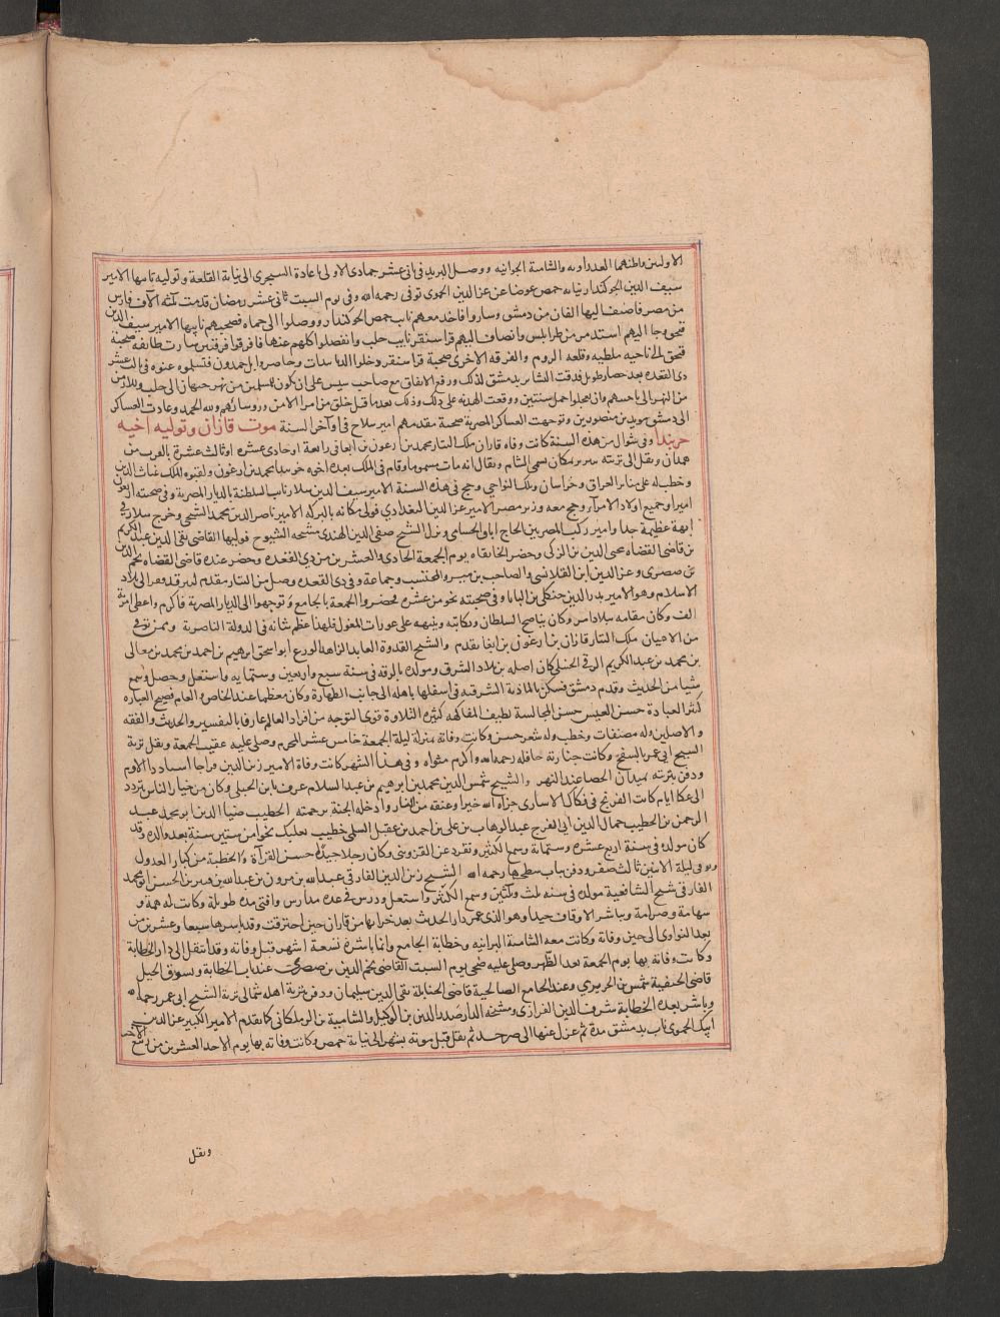 الاولين واظنهما العذراوية والشامية الجوانية ووصل البريد في ثاني عشر جمادى الاولى باعادة السنجري الى نيابة القلعة وتولية نايبها الامير
سيف الدين الجوكندار نيابه حمص عوضا عن عز الدين الحموي توفي رحمه الله وفي يوم السبت ثاني عشر رمضان قدمت ثلثه الاف فارس
من مصر فاضيف اليها الفان من دمشق وساروا فاخذ معهم نايب حمص الجوكندار ووصلوا الى حماه فصحبهم نايبها الامير سيف الدين
قبجق وجا اليهم استدمر من طرابلس وانضاف اليهم قراسنقر نايب حلب وانفصلوا كلهم عنها فافترقوا فرقتين سارت طائفه صحبة
قبجق الى ناحيه ملطيه وقلعه الروم والفرقه الاخرى صحبة قراسنقر دخلوا الدربندات وحاصروا تل حمدون فتسلموه عنوه في ثالث عشر
ذي القعده بعد حصار طويل فدقت البشاير بدمشق لذلك ووقع الاتفاق مع صاحب سيس على ان يكون للمسلمين من نهر جيهان الى حلب وبلاد الارمن
من النهر الى ناحيتهم وان يعجلوا حمل سنتين ووقعت الهدنه على ذلك وذلك بعد ما قتل خلق من امرا الارمن وروسايهم ولله الحمد وعادت العساكر
الى دمشق مويدين منصورين وتوجهت العساكر المصرية صحبة مقدمهم امير سلاح في اواخر السنة موت قازان وتوليه اخيه
خربندا وفي شوال من هذه السنة كانت وفاه قازان ملك التتار محمد بن ارغون بن ابغا في رابعة او حادي عشره او ثالث عشرة بالقرب من
همدان ونقل الى تربته بتبريز بمكان يسمى الشام ويقال انه مات مسموما وقام في الملك بعده اخوه خربندا محمد بن ارغون ولقبوه الملك غياث الدين
وخطب له على منابر العراق وخراسان وتلك النواحي وحج في هذه السنة الامير سيف الدين سلار نايب السلطنة بالديار المصرية وفي صحبته اربعون
اميرا وجميع اولاد الامرآء وحج معه وزير مصر الامير عز الدين البغدادي فولي مكانه بالبركة الامير ناصر الدين محمد الشيخي وخرج سلار في
ابهة عظيمة جدا وامير ركب المصريين الحاج اباق الحسامي وترك الشيخ صفي الدين الهندي مشيخه الشيوخ فوليها القاضي تقي الدين عبد الكريم
بن قاضي القضاه محيي الدين بن الزكي وحضر الخانقاه يوم الجمعة الحادي والعشرين من ذي القعده وحضر عنده قاضي القضاه نجم الدين
بن صصرى وعز الدين ابن القلانسي والصاحب بن ميسر والمحتسب وجماعة وفي ذي القعده وصل من التتار مقدم كبير قد هرب الى بلاد
الاسلام وهو الامير بدر الدين جنكلي بن البابا وفي صحبته نحو من عشره فحضروا الجمعة بالجامع وتوجهوا الى الديار المصرية فاكرم واعطي امرة
الف وكان مقامه ببلاد امد وكان يناصح السلطان ويكاتبه وينبهه على عورات المغول فلهذا عظم شانه في الدولة الناصرية وممن توفي
من الاعيان ملك التتار قازان بن ارغون بن ابغا تقدم والشيخ القدوة العابد الزاهد الورع ابو اسحق ابرهيم بن احمد بن محمد بن معالي
بن محمد بن عبد الكريم الرقي الحنبلي كان اصله من بلاد المشرق ومولده بالرقه في سنة سبع واربعين وستمايه واشتغل وحصل وسمع
شيا من الحديث وقدم دمشق فسكن بالماذنة الشرقيه في اسفلها باهله الى جانب الطهارة وكان معظما عند الخاص والعام فصيح العباره
كثير العبادة حسن العيش حسن المجالسة لطيف المفاكهه كثير التلاوة قوي التوجه من افراد العالم عارفا بالتفسير والحديث والفقه
والاصلين وله مصنفات وخطب وله شعر حسن وكانت وفاته بمنزله ليلة الجمعة خامس عشر المحرم وصلي عليه عقيب الجمعة ونقل تربة
الشيخ ابي عمر بالسفح وكانت جنازته حافله رحمه الله واكرم مثواه وفي هذا الشهر كانت وفاة الامير زين الدين قراجا استاد دار الافرم
ودفن بتربته بميدان الحصا عند النهر والشيخ شمس الدين محمد بن ابرهيم بن عبد السلام عرف بابن الحبلي وكان من خيار الناس تردد
الى عكا ايام كانت الفرنج في فكاك الاسارى جزاه الله خيرا وعتقه من النار وادخله الجنة برحمته الخطيب ضيا الدين ابو محمد عبد
الرحمن بن الخطيب جمال الدين ابي الفرج عبد الوهاب بن علي بن احمد بن عقيل السلمي خطيب بعلبك نحوا من ستين سنة بعد والده وقد
كان مولده في سنة اربع عشره وستماية وسمع الكثير وتفرد عن القزويني وكان رجلا جيدا حسن القرآة والخطبة من كبار العدول
توفي ليلة الاثنين ثالث صفر ودفن بباب سطحها رحمه الله الشيخ زين الدين الفارقي عبد الله بن مرون بن عبد الله بن فيرز بن الحسن ابو محمد
الفارقي شيخ الشافعية مولده في سنه ثلث وثلثين وسمع الكثير واشتغل ودرس في عده مدارس وافتى مده طويلة وكانت له همة و
شهامة وصرامة وباشر الاوقاف جيدا وهو الذي عمر دار الحديث بعد خرابها من قازان حين احترقت وقد باشرها سبعا وعشرين من
بعد النواوي الى حين وفاتة وكانت معه الشامية البرانيه وخطابة الجامع وانما باشره تسعة اشهر قبل وفاته وقد انتقل الى دار الخطابة
وكانت وفاته بها يوم الجمعة بعد الظهر وصلي عليه ضحى يوم السبت القاضي نجم الدين بن صصرى عند باب الخطابة وبسوق الخيل
قاضي الحنفية شمس بن الحريري وعند الجامع الصالحية قاضي الحنابلة تقي الدين سليمان ودفن بتربة اهله شمالي تربة الشيخ ابي عمر رحمه الله
وباشر بعده الخطابة شرف الدين الفزاري ومشيخه الدار صدر الدين بن الوكيل والشامية بن الزملكاني كما تقدم الامير الكبير عز الدين
ايبك الحموي ناب بدمشق مدة ثم عزل عنها الى صرخد ثم نقل قبل موته بشهر الى نيابة حمص وكانت وفاته بها يوم الاحد العشرين من ربيع الاخر
ونقل